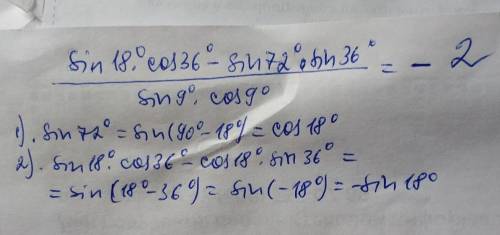 sin18°·cos36° - sin72°·sin36° / sin9°·cos9° = - 2
1). sin72° = sin(90°-18°) = cos18°
2). sin18°·cos36° - cos18°·sin36° =
= sin(18°-36°) = sin(-18°) = -sin18°